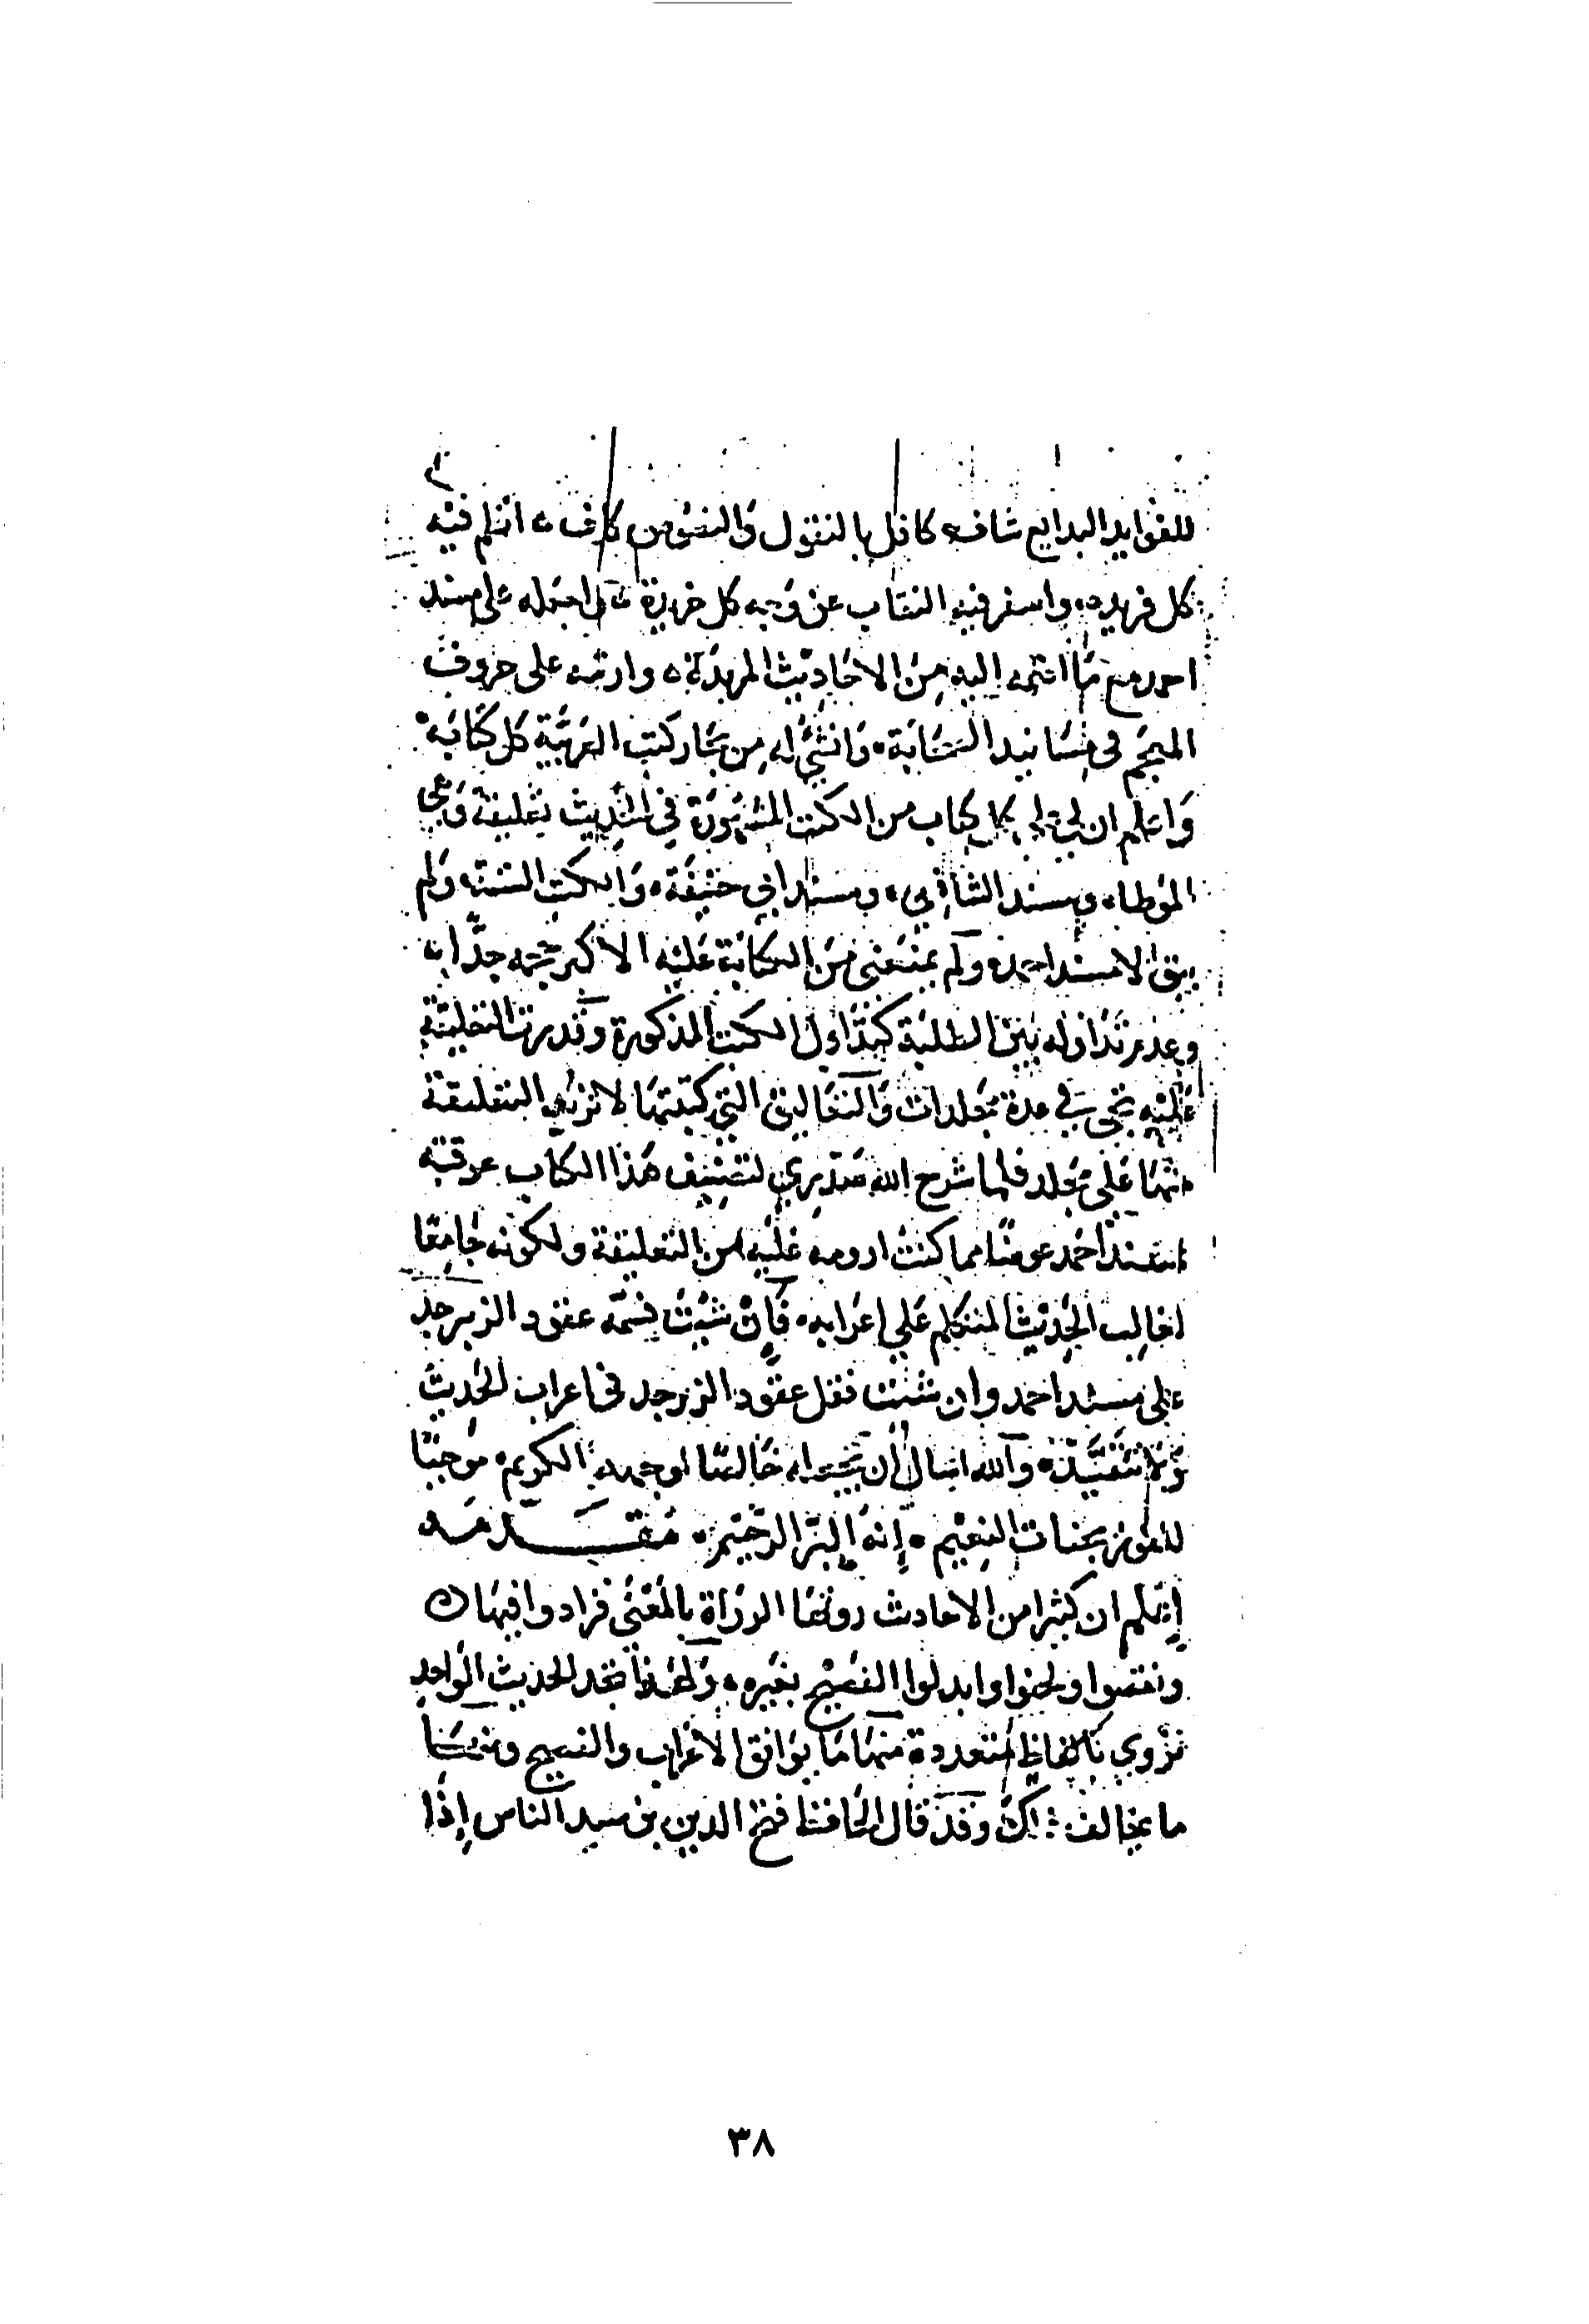 للفوايد البدايع شاف كافل بالنقول والنصوص كاف انظم فيه
كل فريده واسفر فيه النقاب عن وجه كل خريدة اجعله على مسند
احمد مع ما اضمه اليه من الاحاديث المزيدة وارتبه على حروف
المعجم في مسانيد الصحابة وانشئ له من بحار كتب العربية كل كتابه
واعلم ان لي على كل كتاب من الكتب المشهورة في الحديث تعليقة وهي
الموطا ومسند الشافعي ومسند ابي حنيفة والكتب الستة ولم
يبق الا مسند احمد ولم يمنعني من الكتابة عليه الا كبر حجمه جدا
وعدم تداوله بين الطلبة كتداول الكتب المذكورة وقدرت التعليقة
عليه تجي في عدة مجلدات والتعاليق التي كتبتها لا تزيد التعليقة
منها على مجلد فلما شرح الله صدري لتصنيف هذا الكتاب عوقته
بمسند احمد عوضا مما كنت ارومه عليه من التعليقة ولكونه جامعا
لغالب الحديث المتكلم على اعرابه فان شئت فسمه عقود الزبرجد
على مسند احمد وان شئت فقل عقود الزبرجد في اعراب الحديث
ولا تتقيد والله اسال ان يجعله خالصا لوجهه الكريم موجبا
للفوز بجنات النعيم إنه البر الرحيم مقدمه
إعلم ان كثيرا من الاحاديث روتها الرواة بالمعنى فزادوا فيها
ونقصوا ولحنوا وابدلوا الفصيح بغيره ولهذا تجد الحديث الواحد
تروي بالفاظ متعددة منها ما يوافق الاعراب والفصيح ومنها
ما يخالف ذلك وقد قال الحافظ فتح الدين بن سيد الناس إذا
٣٨